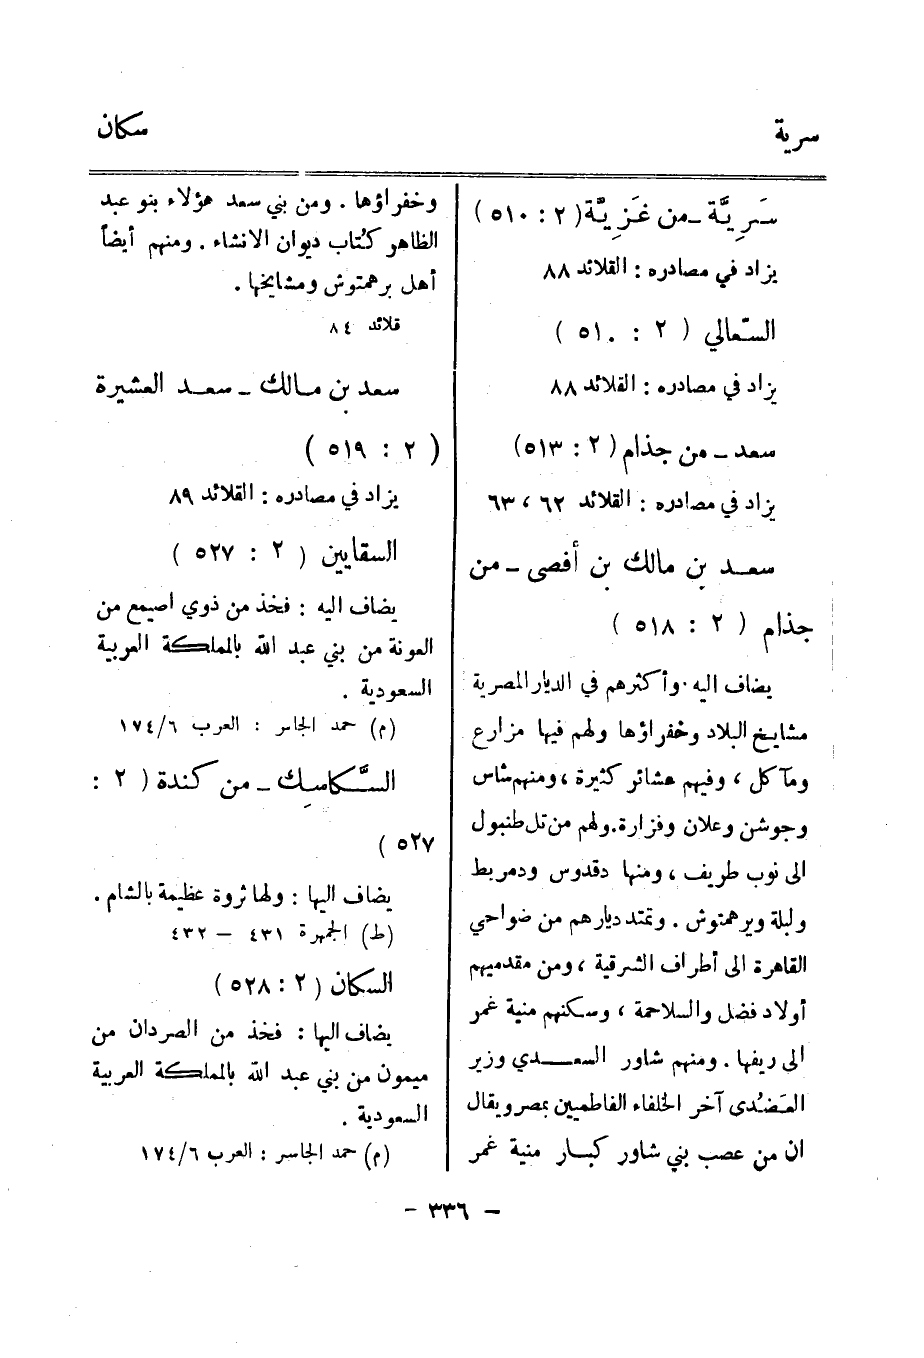 سرية
سكان
سَرِيَّة ــ من غَزِيَّة (٢ : ٥١٠)
يزاد في مصادره : القلائد ٨٨
السّعالي ( ٢ : ٥١٠ )
يزاد في مصادره : القلائد ٨٨
سعد ــ من جذام ( ٢ : ٥١٣)
يزاد في مصادره : القلائد ٦٢ ، ٦٣
سعـد بن مالك بن أفصى ــ من
جذام ( ٢ : ٥١٨ )
يضاف اليه : وأكثرهم في الديار المصرية
مشايخ البلاد وخفراؤها ولهم فيها مزارع
ومآكل ، وفيهم عشائر كثيرة ، ومنهم شاس
وجوشن وعلان وفزارة . ولهم من تل طنبول
الى نوب طريف ، ومنها دقدوس ودمريط
ولبلة وبرهمتوش . وتمتد ديارهم من ضواحي
القاهرة الى أطراف الشرقية ، ومن مقدميهم
أولاد فضل والسلاحمة ، وسكنهم منية غمر
الى ريفها . ومنهم شاور السعـــدي وزير
العَضُدى آخر الخلفاء الفاطميين بمصر ويقال
ان من عصب بني شاور كبـار منية غمر
وخفراؤها . ومن بني سعد هؤلاء بنو عبد
الظاهر كتُاب ديوان الانشاء . ومنهم أيضاً
أهل برهمتوش ومشايخها .
قلائد ٨٤
سعد بن مـالك ــ سعـد العشيرة
( ٢ : ٥١٩ )
يزاد في مصادره : القلائد ٨٩
السقايين ( ٢ : ٥٢٧ )
يضاف اليه : فخذ من ذوي اصيمع من
العونة من بني عبد الله بالمملكة العربية
السعودية .
(م) حمد الجاسر : العرب ١٧٤/٦
السَّكاسِك ــ من كندة ( ٢ :
٥٢٧ )
يضاف اليها : ولها ثروة عظيمة بالشام .
(ط) الجمهرة ٤٣١ – ٤٣٢
السكان ( ٢ : ٥٢٨ )
يضاف اليها : فخذ من الصردان من
ميمون من بني عبد الله بالمملكة العربية
السعودية .
(م) حمد الجاسر : العرب ١٧٤/٦
– ٣٣٦ –